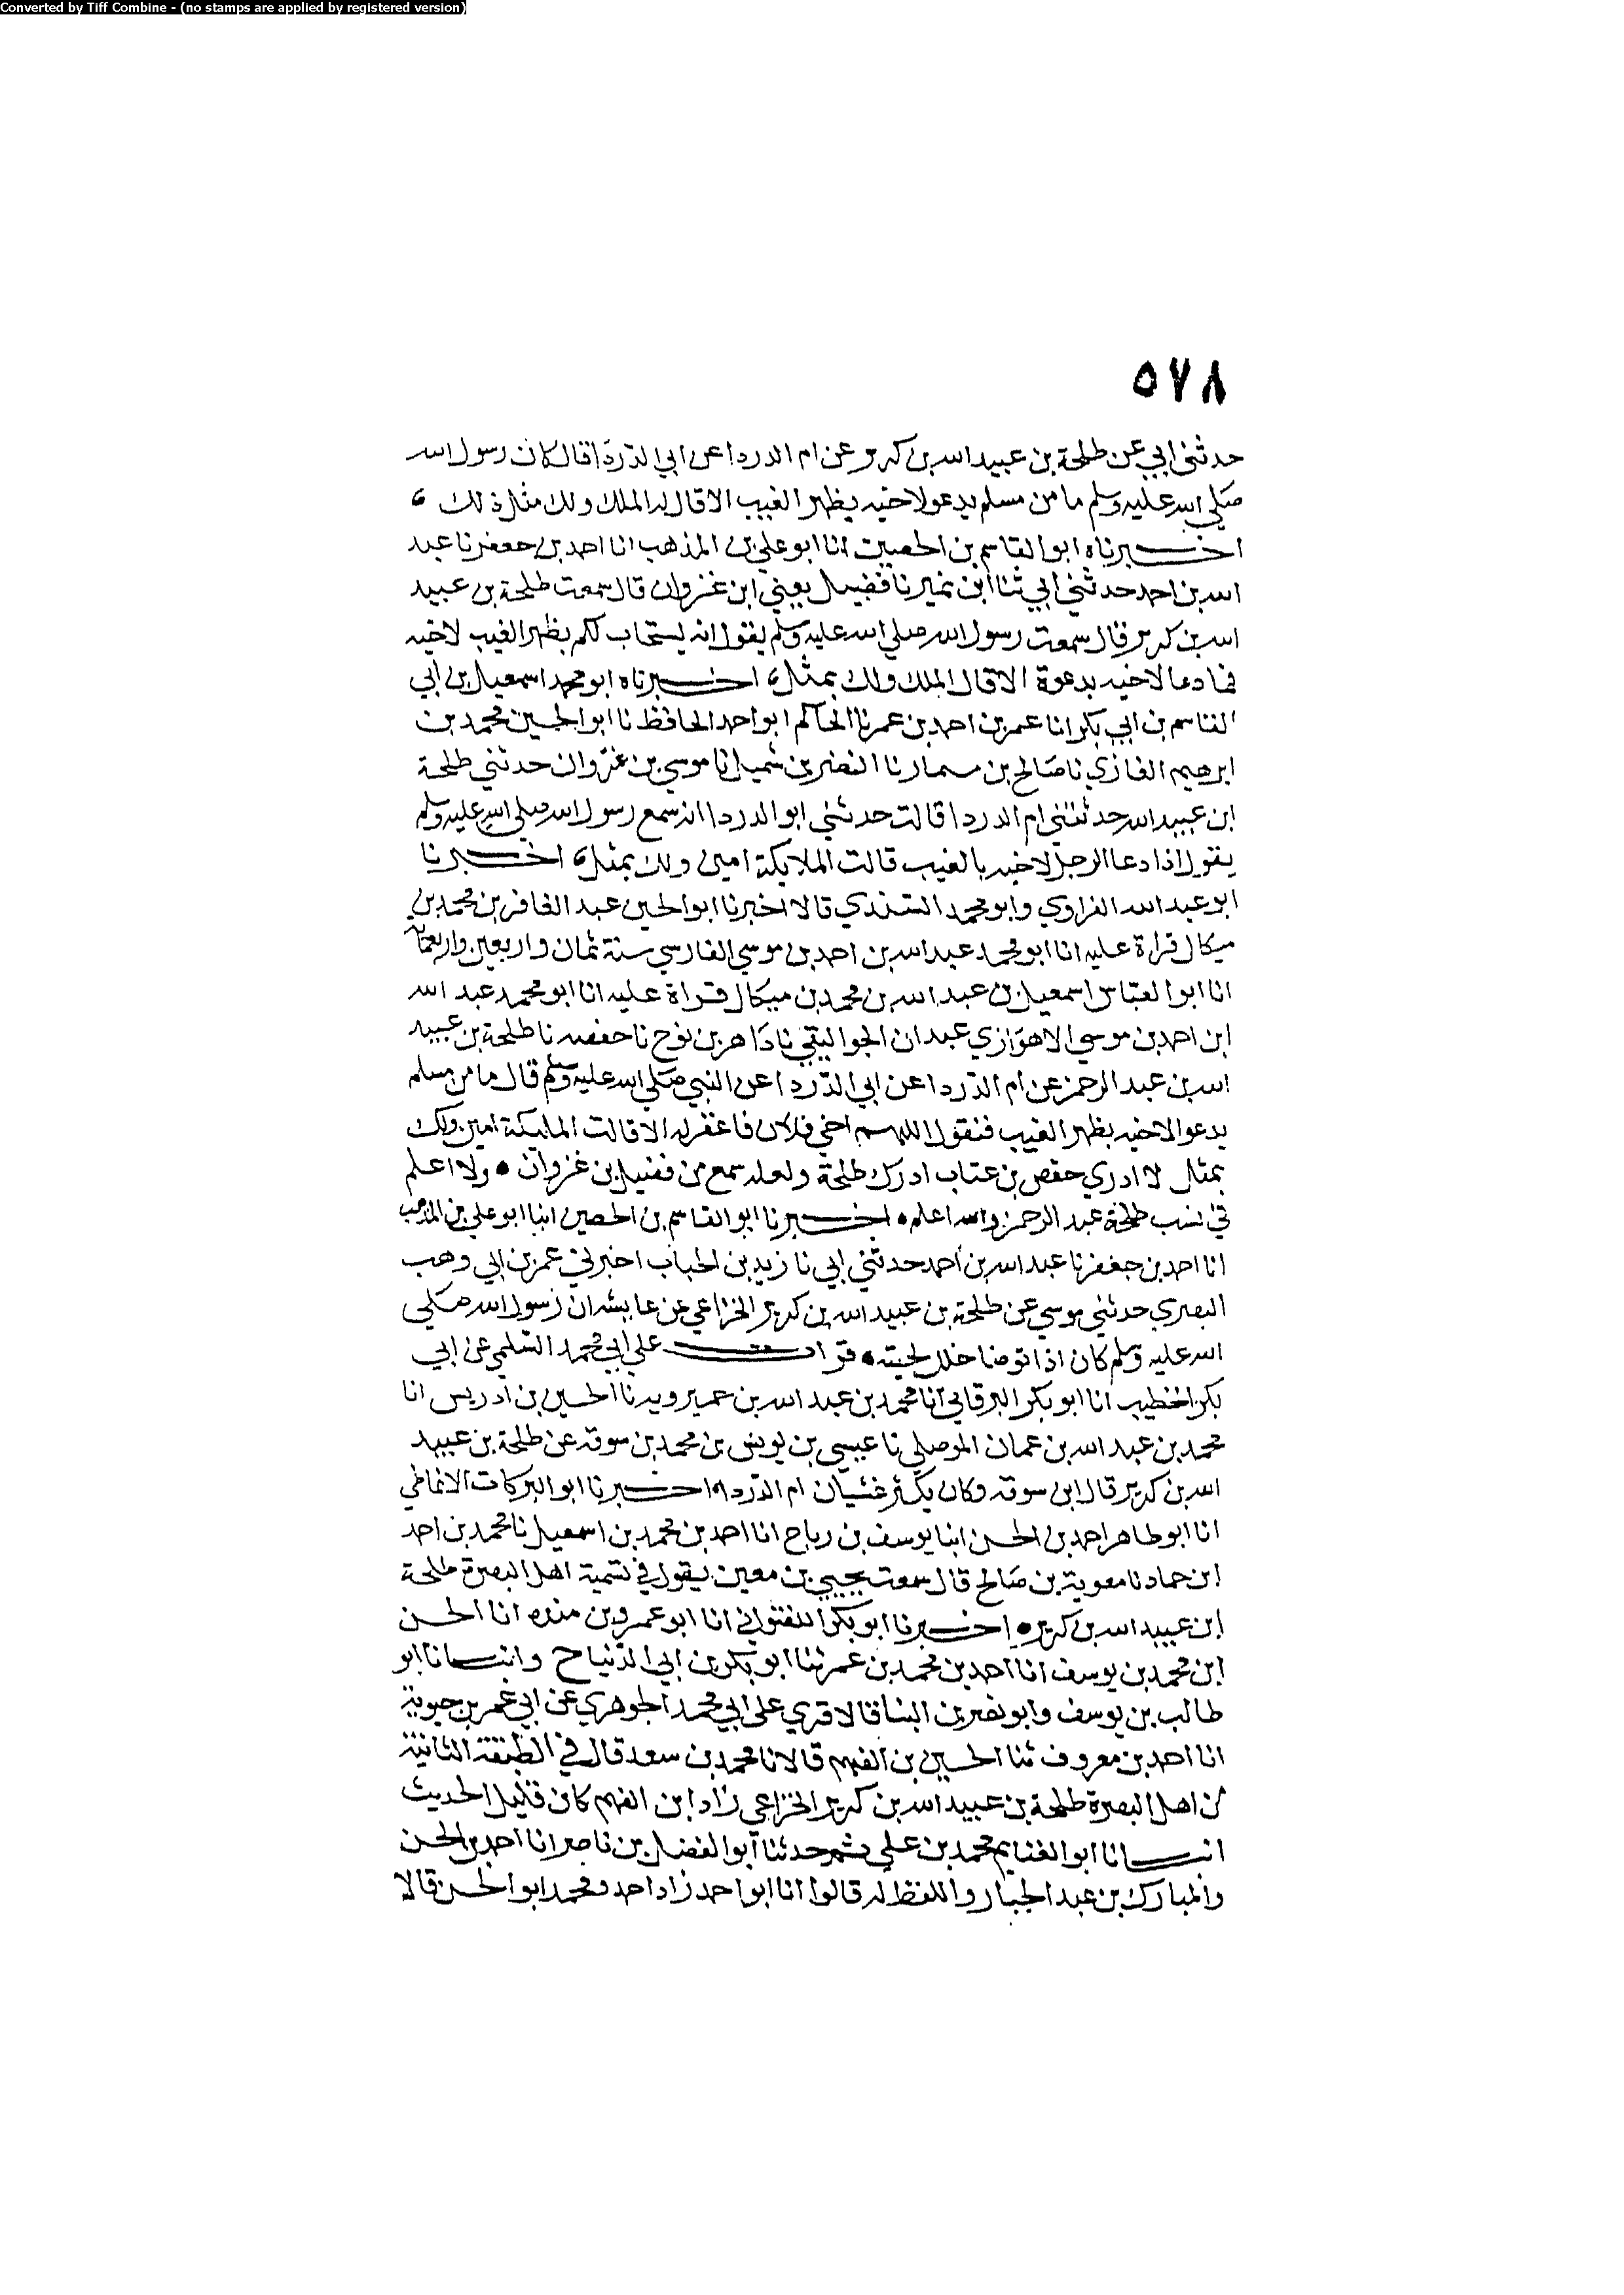 Converted by Tiff Combine - (no stamps are applied by registered version)
٥٧٨
حدثني ابي عن طلحة بن عبيد الله بن كريز عن ام الدردا عن ابي الدردا قال كان رسول الله
صلى الله عليه وسلم ما من مسلم يدعو لاخيه بظهر الغيب الا قال له الملك ولك مثل ذلك
اخبرناه ابو القاسم بن الحصين انا ابو علي بن المذهب انا احمد بن جعفر نا عبد
الله بن احمد حدثني ابي ثنا ابن نمير نا فضيل يعني ابن غزوان قال سمعت طلحة بن عبيد
الله بن كريز قال سمعت رسول الله صلي الله عليه وسلم يقول انه يستجاب لكم بظهر الغيب لاخيه
فما دعا لاخيه بدعوة الا قال الملك ولك بمثل اخبرناه ابو محمد اسمعيل بن ابي
القاسم بن ابي بكر انا عمر بن احمد بن عمر نا الحاكم ابو احمد الحافظ نا ابو الحسين محمد بن
ابرهيم الغازي نا صالح بن سمار نا النضر بن شميل نا موسي بن غزوان حدثني طلحة
ابن عبيد الله حدثتني ام الدردا قالت حدثني ابو الدردا انه سمع رسول الله صلي الله عليه وسلم
يقول اذا دعا الرجل لاخيه بالغيب قالت الملايكة امين ولك بمثل اخبرنا
ابو عبد الله الفراوي وابو محمد السندي قالا اخبرنا ابو الحسين عبد الغافر بن محمد بن
ميكال قراة عليه انا ابو محمد عبد الله بن احمد بن موسي الفارسي سنة ثمان واربعين واربعمائة
انا ابو العباس اسمعيل بن عبد الله بن محمد بن ميكال قراة عليه انا ابو محمد عبد الله
ابن احمد بن موسي الاهوازي عبدان الجواليقي نا داهر بن نوح نا حفص نا طلحة بن عبيد
الله بن عبد الرحمن عن ام الدردا عن ابي الدردا عن النبي صلي الله عليه وسلم قال ما من مسلم
يدعو لاخيه بظهر الغيب فنقول اللهم اخي فلان فاغفر له الا قالت المليكة امين ولك
بمثل لا ادري حفص بن عتاب ادرك طلحة ولعله سمع من فضيل بن غزوان • ولا اعلم
في نسب طلحة عبد الرحمن والله اعلم • اخبرنا ابو القاسم بن الحصين انبا ابو علي بن المذهب
انا احمد بن جعفر نا عبد الله بن احمد حدثني ابي نا زيد بن الحباب اخبرني عمر بن ابي وهب
البصري حدثني موسي عن طلحة بن عبيد الله بن كريز الخزاعي عن عايشه ان رسول الله صلي
الله عليه وسلم كان اذا توضا خلل لحيته • قرات علي ابي محمد السلمي عن ابي
بكر الخطيب انا ابو بكر البرقاني انا محمد بن عبد الله بن خميرويه نا الحسين بن ادريس انا
محمد بن عبد الله بن عمان الموصلي نا عيسي بن يونس بن محمد بن سوقه عن طلحة بن عبيد
الله بن كريز قال ابن سوقه وكان يكثر غشيان ام الدردا اخبرنا ابو البركات الانماطي
انا ابو طاهر احمد بن الحسن انبا يوسف بن رباح انا احمد بن محمد بن اسمعيل نا محمد بن احمد
ابن حماد نا معوية بن صالح قال سمعت يحيي بن معين يقول في تسمية اهل البصرة طلحة
ابن عبيد الله بن كريز • اخبرنا ابو بكر اللفتواني انا ابو عمرو بن منده انا الحسن
ابن محمد بن يوسف انا احمد بن محمد بن عمر ثنا ابو بكر بن ابي الدنيا ح وانبانا ابو
طالب بن يوسف وابو نصر بن البنا قالا قري علي ابي محمد الجوهري عن ابي عمر بن حيوية
انا احمد بن معروف ثنا الحسين بن الفهم قالا نا محمد بن سعد قال في الطبقة الثانية
من اهل البصرة طلحة بن عبيد الله بن كريز الخزاعي زاد ابن الفهم كان قليل الحديث
انبانا ابو الغنايم محمد بن علي ثم حدثنا ابو الفضل بن ناصر انا احمد بن الحسن
والمبارك بن عبد الجبار واللفظ له قالوا انا ابو احمد زاد احمد ومحمد ابو الحسن قالا